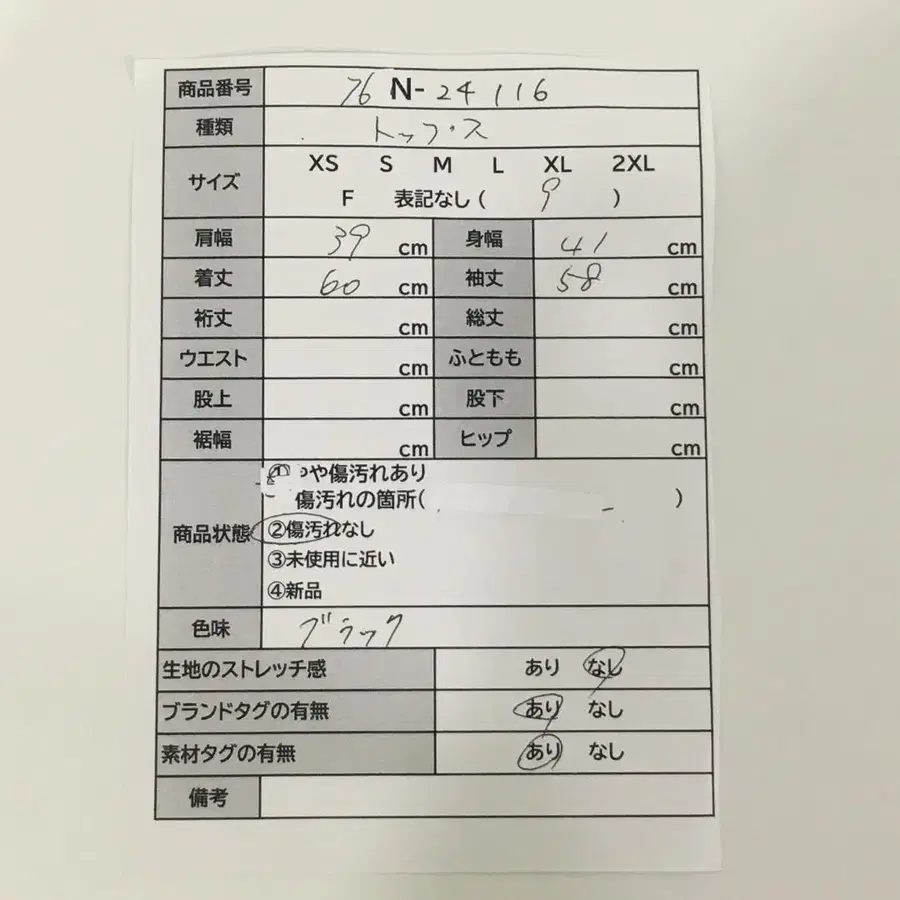 商品番号 76 N- 24116
種類 トップス
サイズ XS S M L XL 2XL
F 表記なし ( 9 )
肩幅 39 cm 身幅 41 cm
着丈 60 cm 袖丈 58 cm
裄丈 cm 総丈 cm
ウエスト cm ふともも cm
股上 cm 股下 cm
裾幅 cm ヒップ cm
商品状態
① や傷汚れあり
傷汚れの箇所( )
②傷汚れなし
③未使用に近い
④新品
色味 ブラック
生地のストレッチ感 あり なし
ブランドタグの有無 あり なし
素材タグの有無 あり なし
備考